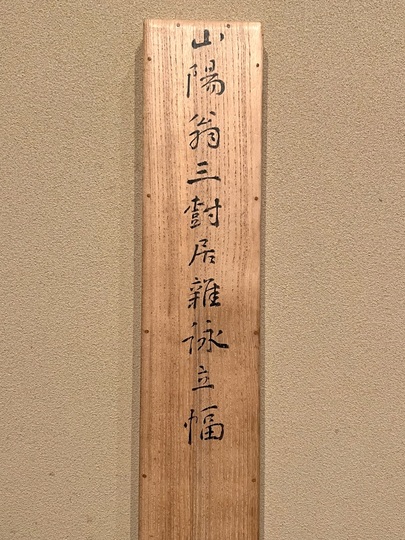 山陽翁三對居雜詠立幅